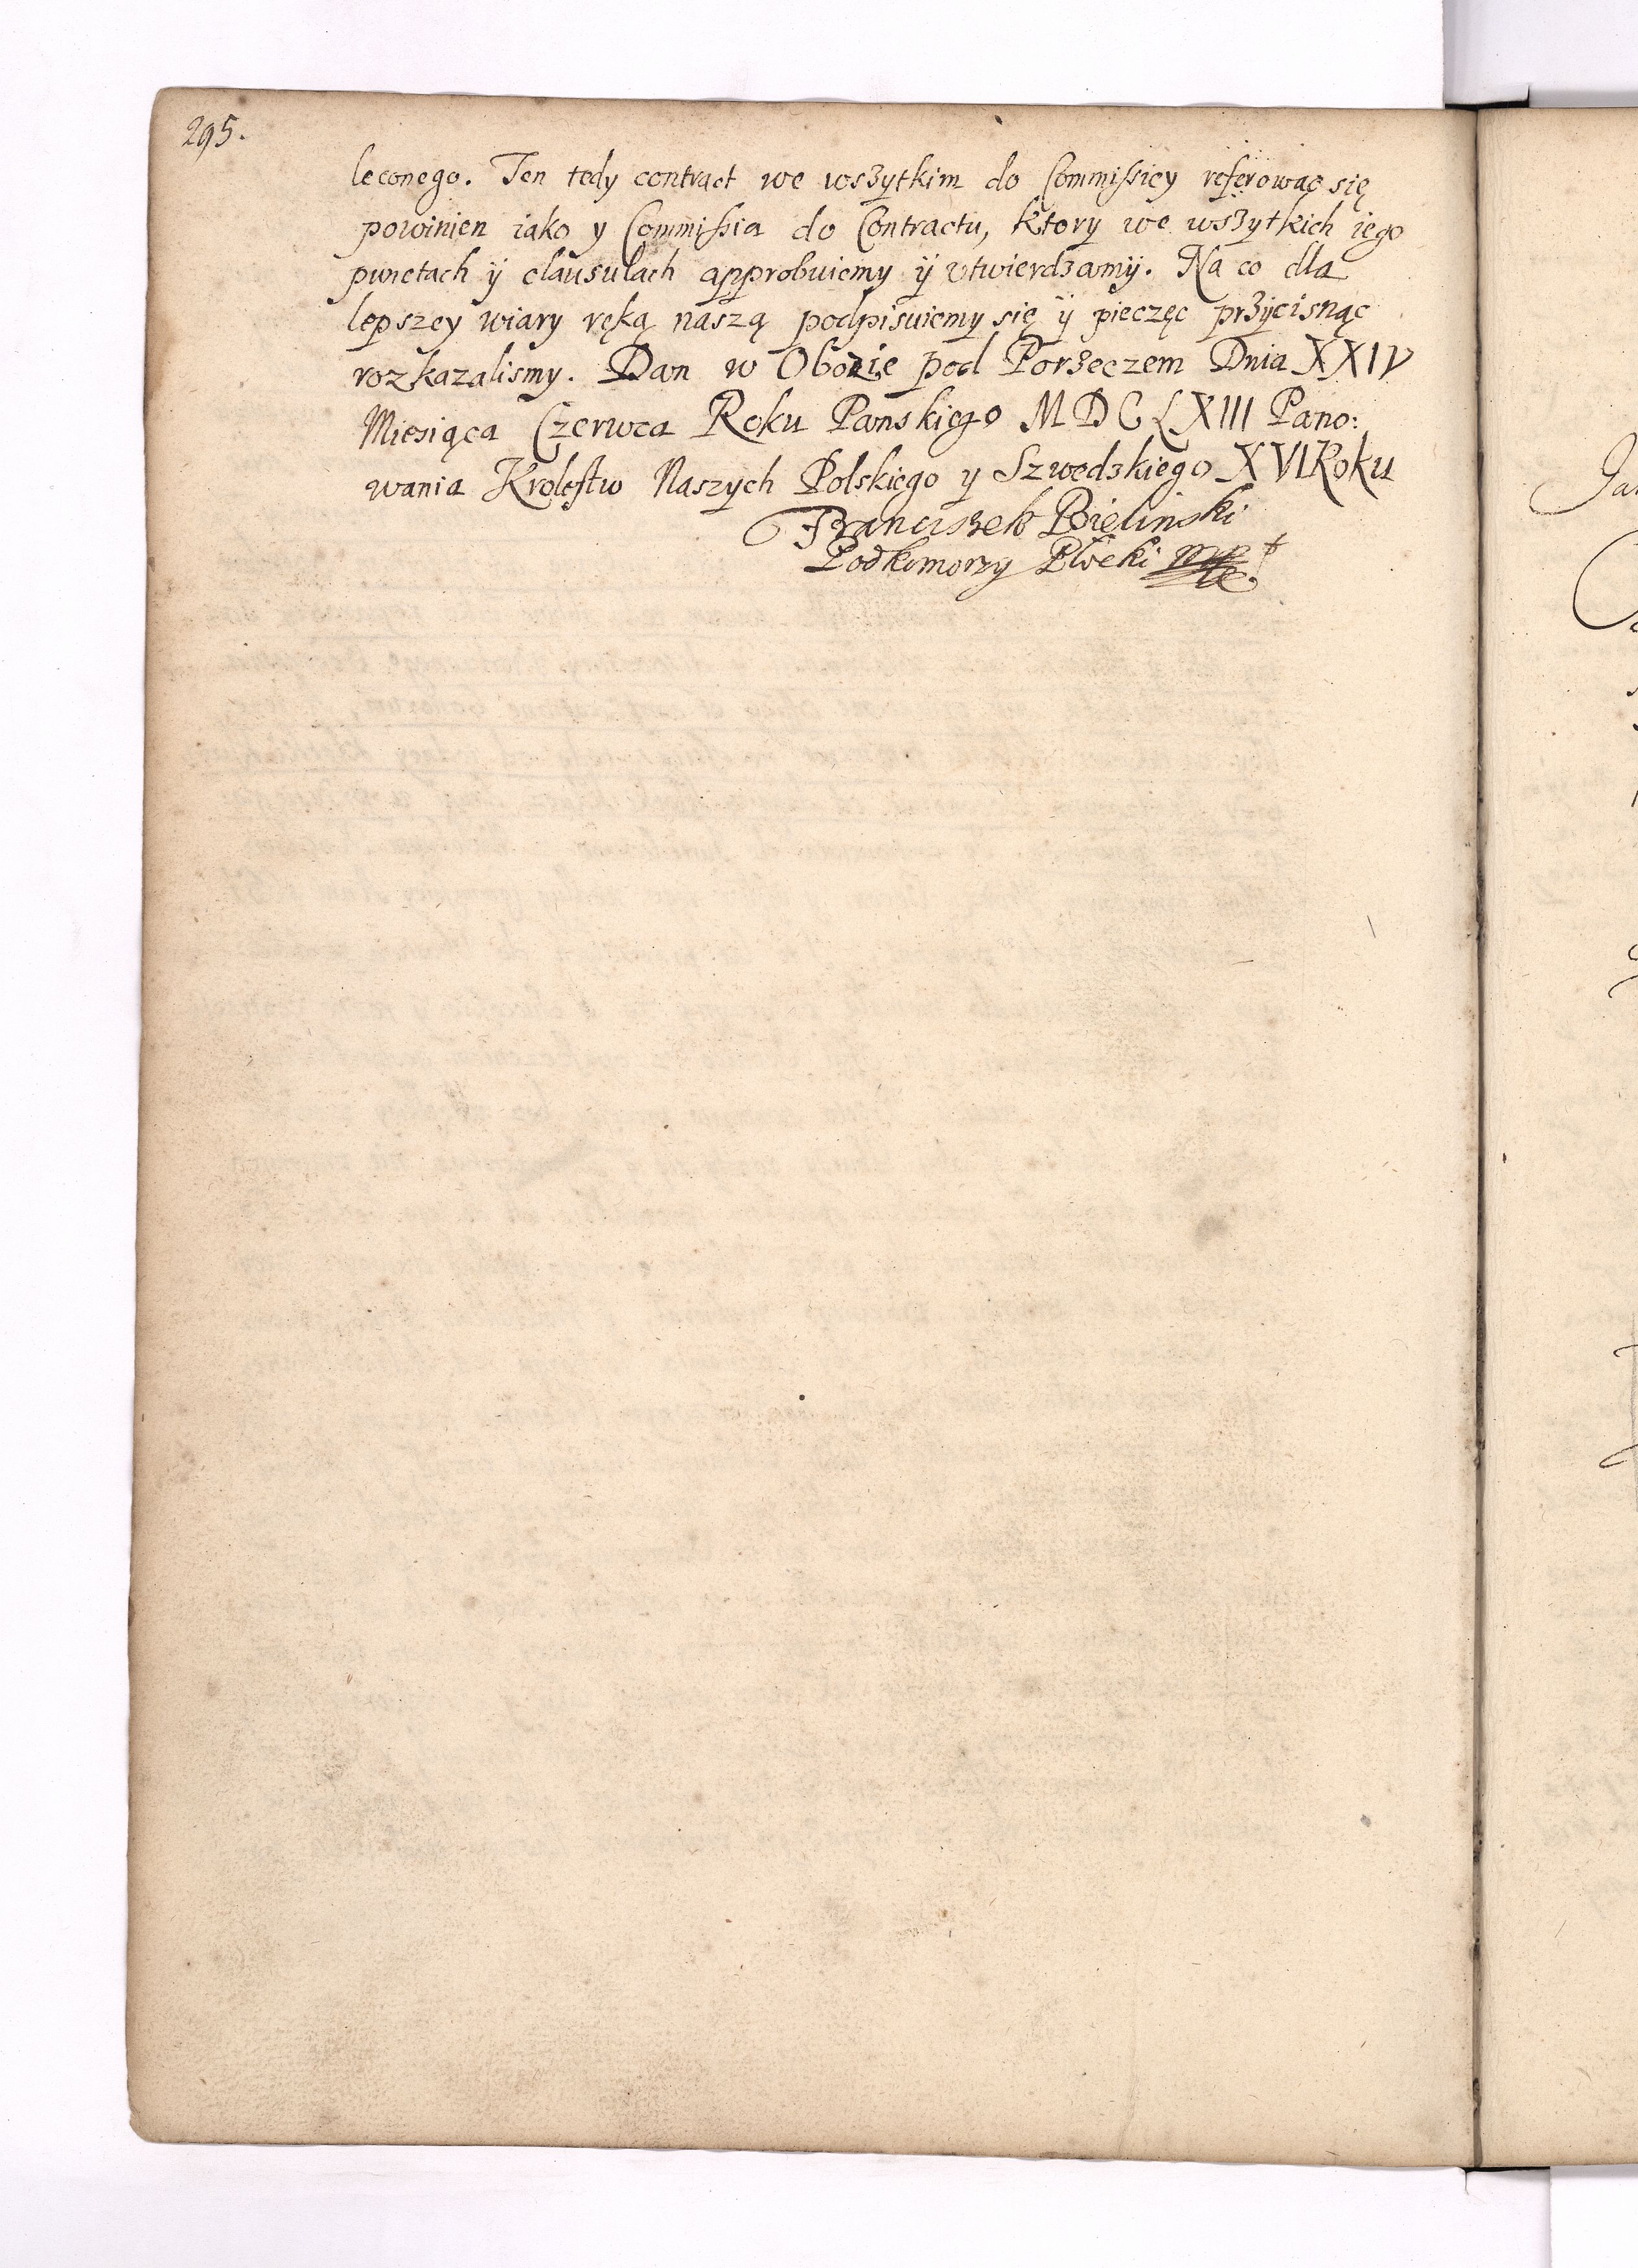 295.
leconego. Ten tedy contract we wszytkim do Commissiey referowac się
powinien iako y Commissia do Contractu, ktory we wszytkich iego
punctach ÿ clausulach approbuiemy ÿ vtwierdzamÿ. Na co dla
lepszey wiary ręką naszą podpisuiemy się ÿ pieczęc przÿcisnąc
rozkazalismy. Dan w Obozie pod Porzeczem Dnia XXIV
Miesiąca Czerwca Roku Panskiego MDCLXIII Pano:
wania Krolestw Naszych Polskiego y Szwedzkiego XVI Roku
Franciszek Bielinski
Podkomorzy Płocki